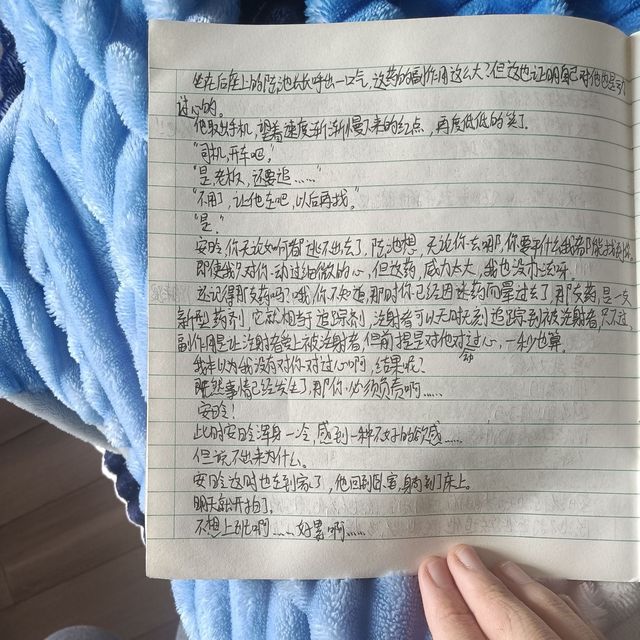 坐在后座上的陈池长长呼出一口气，这药的副作用这么大？但这也证明自己对他也是动
过心的。
他取出手机，望着速度渐渐慢下来的红点，再度低低的笑了。
“司机，开车吧。”
“是，老板，还要追……”
“不用了，让他走吧，以后再找。”
“是。”
安聆你无论如何都逃不出去了，陈池想，无论你去哪，你要干什么我都能找到你。
即使我对你动过细微的心，但这药，威力太大，我也没办法呀。
还记得那支药吗？哦你不知道，那时你已经因迷药而晕过去了，那支药，是一支
新型药剂，它就相当于追踪剂，注射者可以无时无刻追踪到被注射者，只不过
副作用是让注射者爱上被注射者，但前提是对他动过心，一秒也算。
我本以为我没有对你动过心啊，结果呢？
既然事情已经发生了，那你必须负责啊……
安聆！
此时安聆浑身一冷，感到一种不好的预感……
但说不出来为什么。
安聆这时也走到家了，他回到卧室，躺到了床上。
明天就开拍了。
不想上班啊……好累啊……